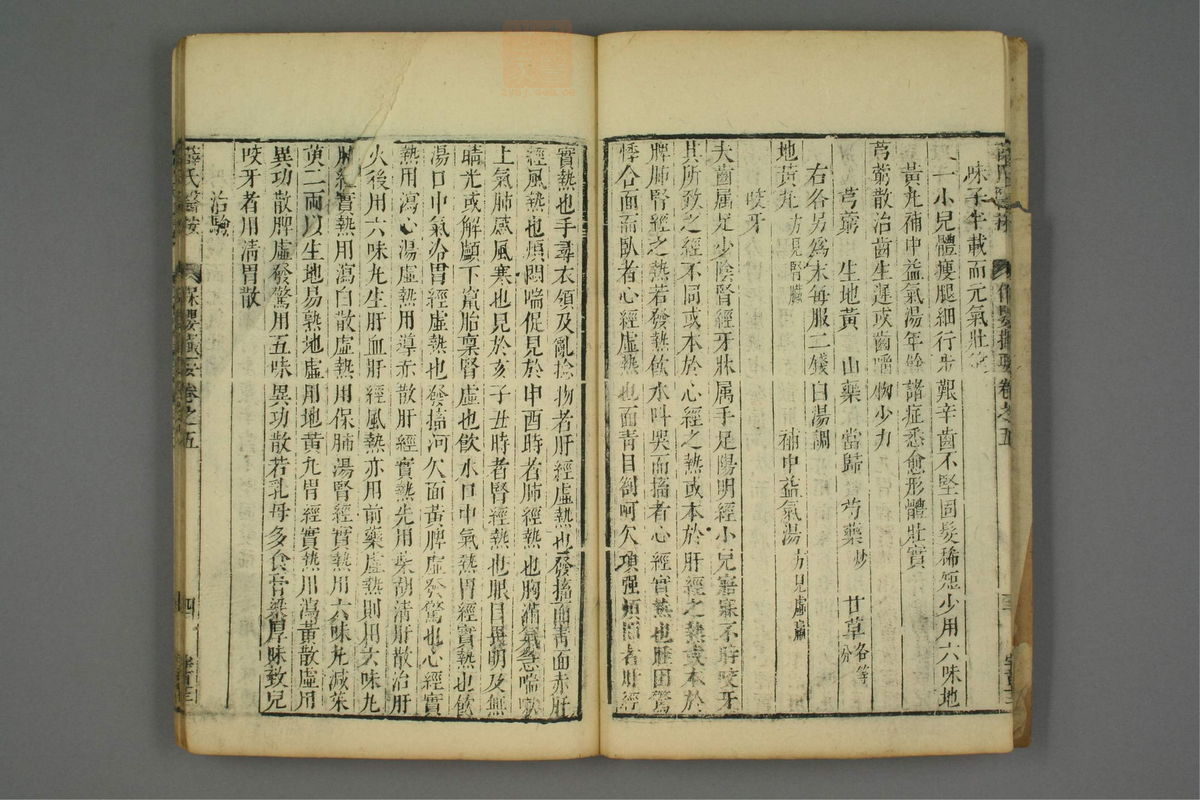 味子半載而元氣壯
一小兒體瘦腿細行步艱辛齒不堅固髮稀短少用六味地
黃丸補中益氣湯年餘諸症悉愈形體壯實
芎藭散治齒生遲或齒嚼物少力
芎藭 生地黃 山藥 當歸 芍藥炒 甘草各等分
右各另爲末每服二錢白湯調
地黃丸方見腎臟 補中益氣湯方見虛羸
咬牙
夫齒屬足少陰腎經牙牀屬手足陽明經小兒寤寐不時咬牙
其所致之經不同或本於心經之熱或本於肝經之熱或本於
脾肺腎經之熱若發熱飲水叫哭而搐者心經實熱也睡困驚
悸合面而臥者心經虛熱也面青目劄呵欠項强煩悶者肝經
實熱也手尋衣領及亂捻物者肝經虛熱也發搐面靑面赤肝
經風熱也煩悶喘促見於申酉時者肺經熱也胸滿氣急喘嗽
上氣肺感風寒也見於亥子丑時者腎經熱也眼目畏明及無
睛光或解顱下竄胎稟腎虛也飲水口中氣熱胃經實熱也飲
湯口中氣冷胃經虛熱也發搐呵欠面黃脾虛發驚也心經實
熱用瀉心湯虛熱用導赤散肝經實熱先用柴胡清肝散治肝
火後用六味丸生肝血肝經風熱亦用前藥虛熱則用六味丸
肺經實熱用瀉白散虛熱用保肺湯腎經實熱用六味丸減茱
萸二兩以生地易熟地虛用地黃丸胃經實熱用瀉黃散虛用
異功散脾虛發驚用五味異功散若乳母多食膏粱厚味致兒
咬牙者用清胃散
治驗
薛氏醫按 保嬰撮要卷之五 四